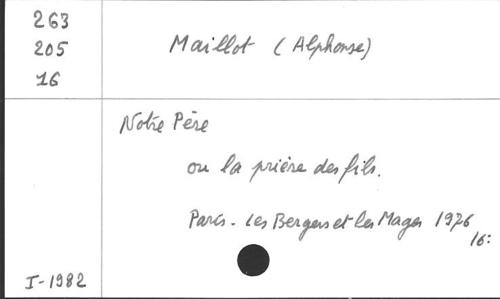 263
205
16
Maillot (Alphonse)
Notre Père
ou la prière des fils.
Paris - Les Bergers et les Mages 1976
16:
I-1982